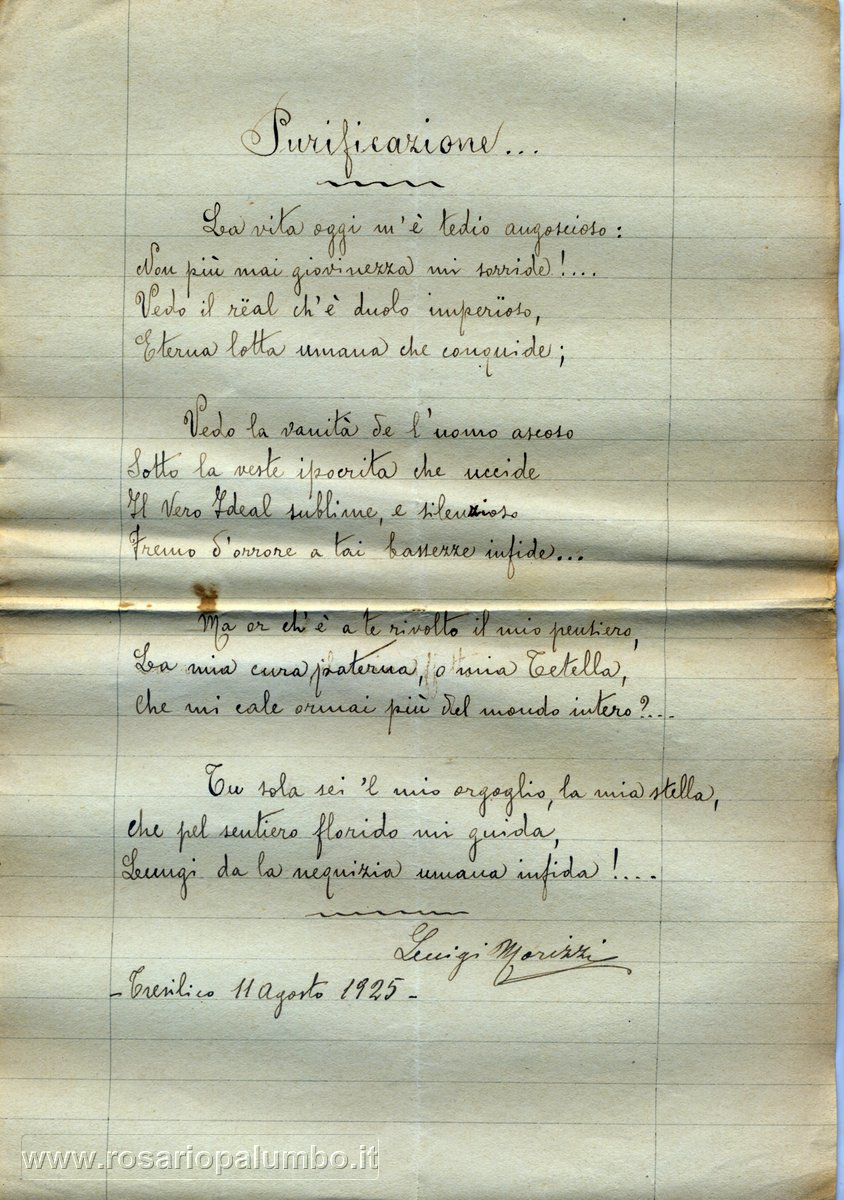 Purificazione...
La vita oggi m'è tedio angoscioso:
Non più mai giovinezza mi sorride!....
Vedo il rëal ch'è duolo imperïoso,
Eterna lotta umana che conquide;
Vedo la vanità de l'uomo ascoso
Sotto la veste ipocrita che uccide
Il Vero Ideal sublime, e silenzioso
Fremo d'orrore a tai bassezze infide...
Ma or ch'è a te rivolto il mio pensiero,
La mia cura paterna, o mia Tetella,
Che mi cale ormai più del mondo intero?...
Tu sola sei 'l mio orgoglio, la mia stella,
che pel sentiero florido mi guida,
Lungi da la nequizia umana infida!....
Luigi Morizzi
- Tresilico 11 Agosto 1925 -
www.rosariopalumbo.it